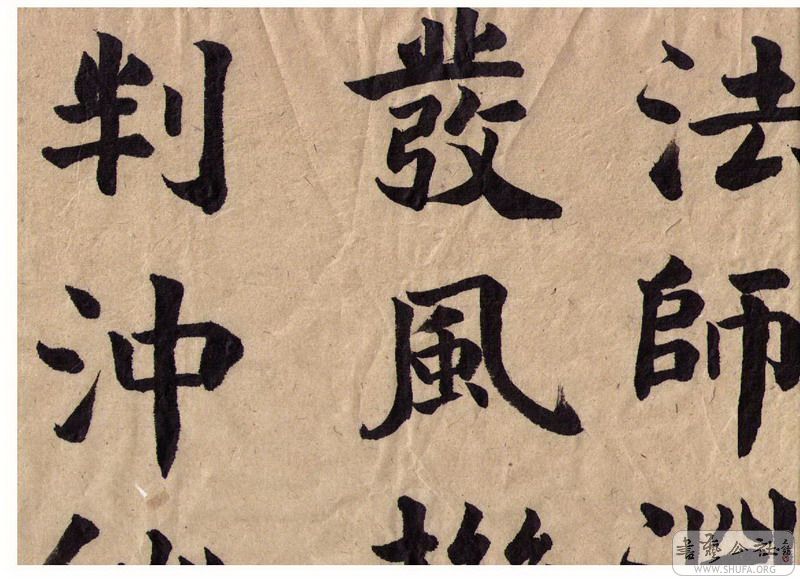 法師
發風
判沖
書藝公社
WWW.SHUFA.ORG